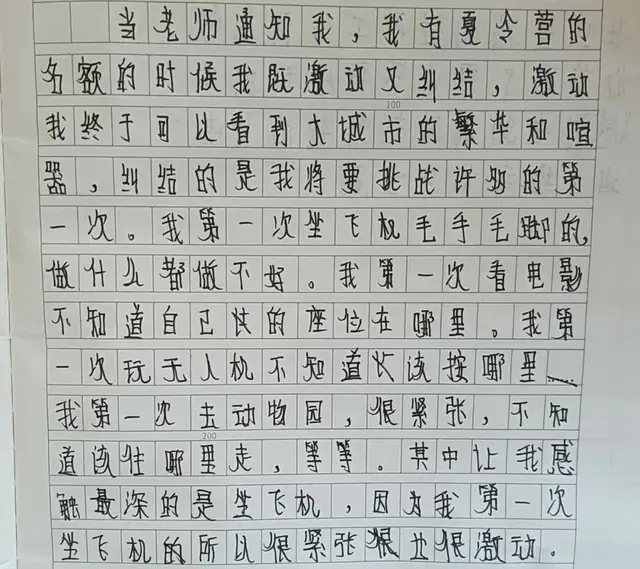 当老师通知我，我有夏令营的
名额的时候我既激动又纠结，激动
100
我终于可以看到大城市的繁华和喧
器，纠结的是我将要挑战许多的第
一次。我第一次坐飞机毛手毛脚的，
做什么都做不好。我第一次看电影
不知道自己的座位在哪里。我第
一次玩无人机不知道该按哪里……
我第一次去动物园，很紧张，不知
200
道该住哪里走，等等。其中让我感
触最深的是坐飞机，因为我第一次
坐飞机的所以很紧张很且很激动。